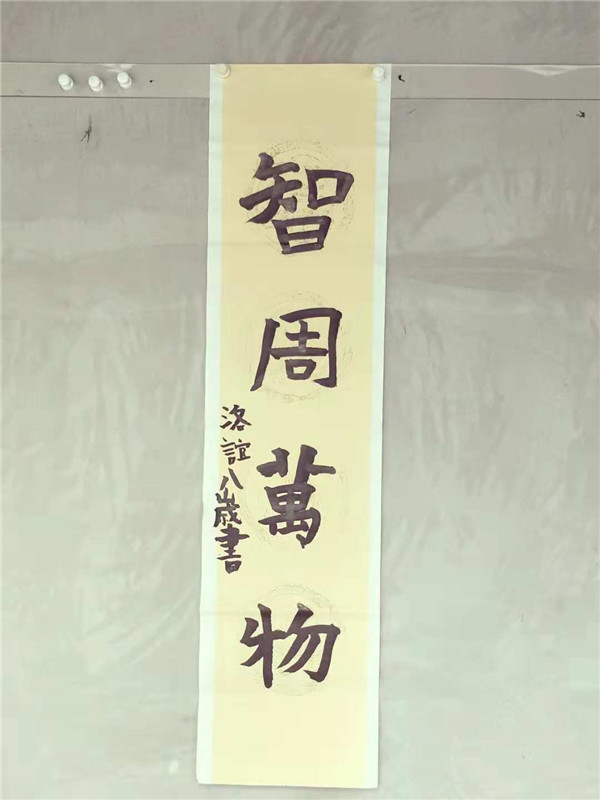 智周萬物
洛誼八歲書